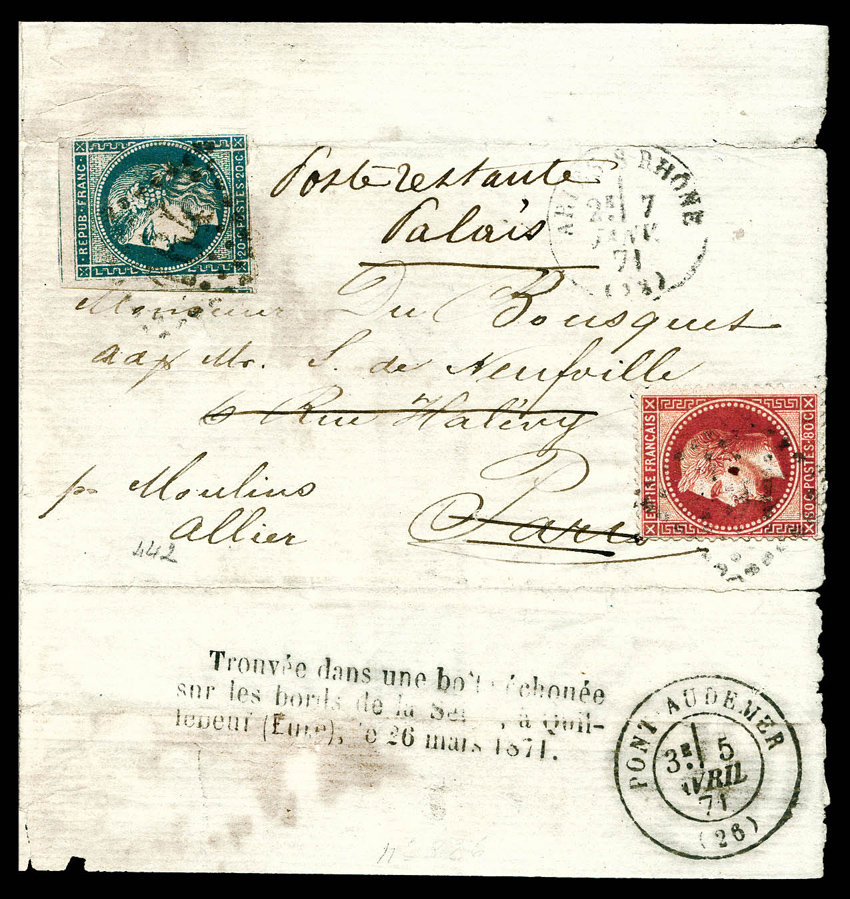 REPUB·FRANC·
20c·POSTES·20·C·
Poste restante
Palais
ARLES S RHÔNE
2E 7
JANV
71
Monsieur Du Bousquet
aux Mr. S. de Neufville
6 Rue Halévy
pr Moulins
Allier
Paris
442
EMPIRE FRANCAIS
80C·POSTES·80C
Trouvée dans une boîte échouée
sur les bords de la Sei , à Quil-
lebeuf (Eure), le 26 mars 1871.
PONT-AUDEMER
3E 5
AVRIL
71
(26)